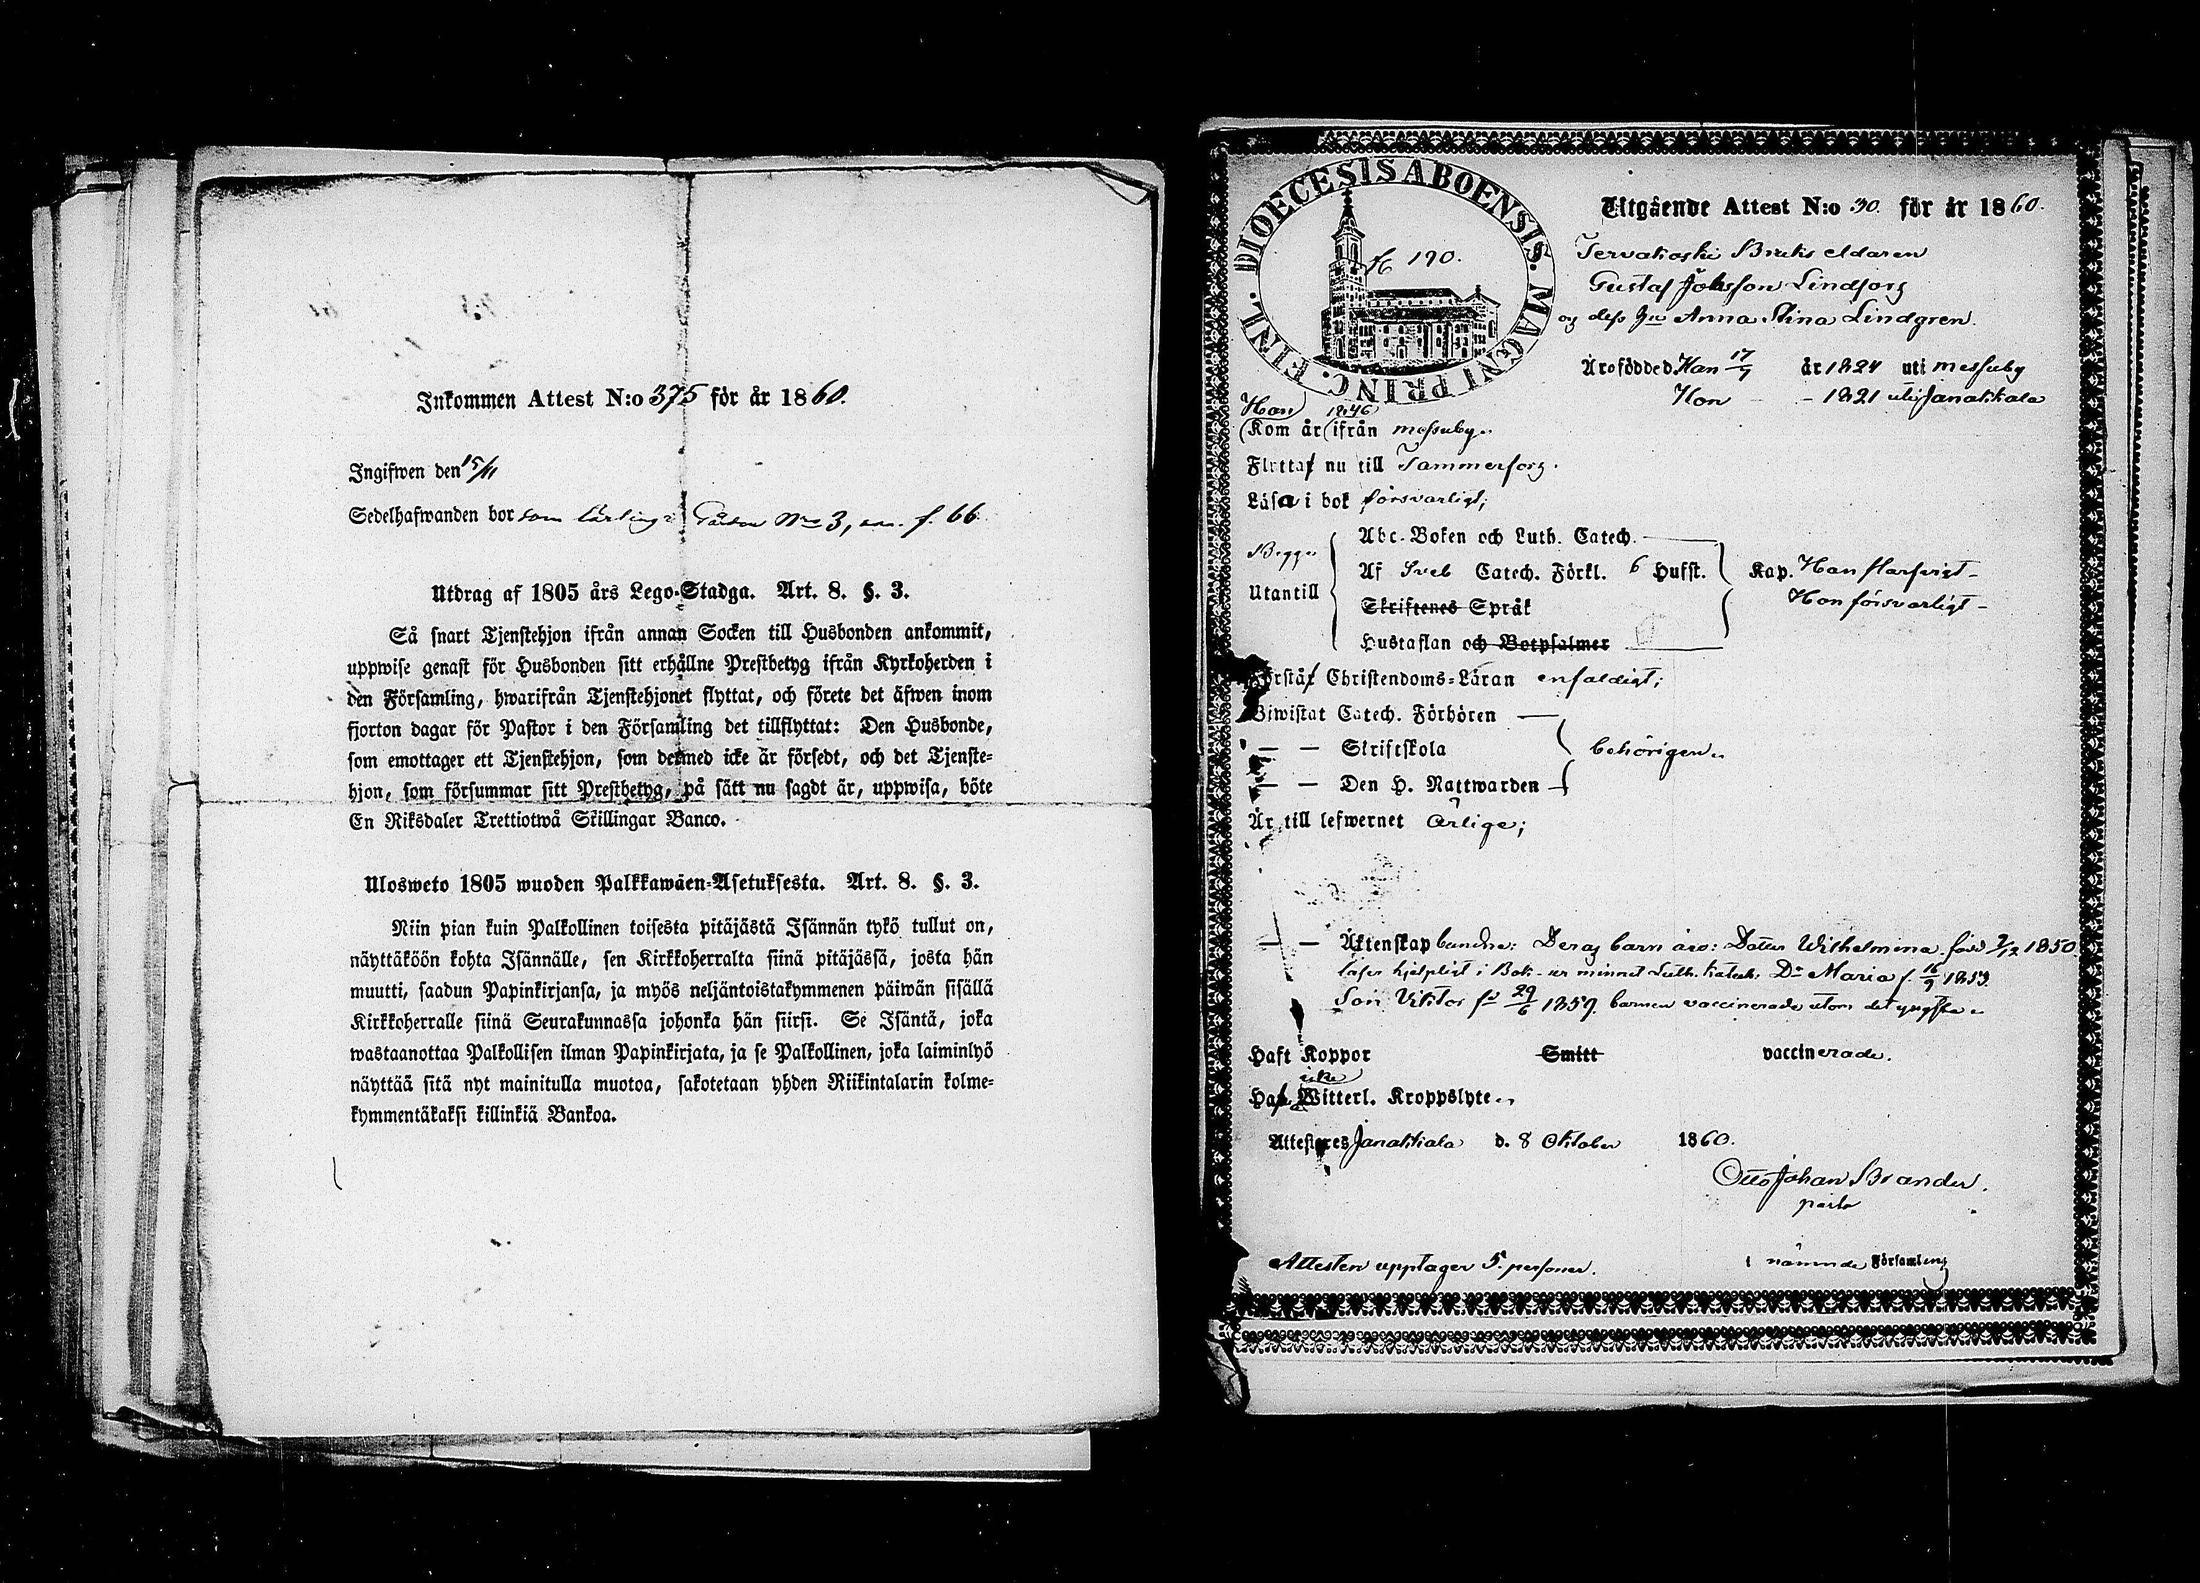 Inkommen Attest N:o 375 för år 1860.
Ingifwen den 15/11
Sedelhafwanden bor som lärling i Gården No 3, f. 66.
Utdrag af 1805 års Lego-Stadga. Art. 8. §. 3.
Så snart Tjenstehjon ifrån annan Socken till Husbonden ankommit,
uppwise genast för Husbonden sitt erhållne Prestbetyg ifrån Kyrkoherden i
den Församling, hwarifrån Tjenstehjonet flyttat, och förete det äfwen inom
fjorton dagar för Pastor i den Församling det tillflyttat: Den Husbonde,
som emottager ett Tjenstehjon, som dermed icke är försedt, och det Tjenste-
hjon, som försummar sitt Prestbetyg, på sätt nu sagdt är, uppwisa, böte
En Riksdaler Trettiotwå Skillingar Banco.
Ulosweto 1805 wuoden Palkkawäen-Asetuksesta. Art. 8. §. 3.
Niin pian kuin Palkollinen toisesta pitäjästä Isännän tykö tullut on,
näyttäköön kohta Isännälle, sen Kirkkoherralta siinä pitäjässä, josta hän
muutti, saadun Papinkirjansa, ja myös neljäntoistakymmenen päiwän sisällä
Kirkkoherralle siinä Seurakunnassa johonka hän siirsi. Se Isäntä, joka
wastaanottaa Palkollisen ilman Papinkirjata, ja se Palkollinen, joka laiminlyö
näyttää sitä nyt mainitulla muotoa, sakotetaan yhden Riikintalarin kolme-
kymmentäkaksi killinkiä Bankoa.
DIOECESIS ABOENSIS. MAGNI PRINC. FINL.
190.
Utgående Attest N:o 30. för år 1860.
Tervakoski Bruks eldaren
Gustaf Johsson Lindfors
og dess Hu Anna Stina Lindgren.
Äro födde Han 17/9 år 1824 uti messuby
Hon - - 1821 uti Janakkala
Han 1846
Kom år ifrån messuby.
Flytta nu till Tammerfors.
Läsa i bok försvarligt;
Begge
Utantill
Abc-Boken och Luth. Catech.
Af Sveb Catech. Förkl. 6 Hufst. Kap. Han
Hon försvarligt
Skriftenes Språk
Hustaflan och Botpsalmer
Förstå Christendoms-Läran enfaldigt;
Biwistat Catech. Förhören
— — Skriftskola behörigen
— — Den H. Nattwarden
Är till lefwernet ärlige;
— — Äktenskap bundne: Deras barn äro: Dotter Wilhelmina född 7/12 1850
läser hjelpligt i Bok ur minnet Luth. katek. Do Maria f. 16/9 1853
Son Viktor fd 29/6 1859. barnen vaccinerade utom det yngsta
Haft Koppor Smitt vaccinerade.
icke
Hafa Witterl. Kroppslyte
Attesteres Janakkala d. 8 Oktober 1860.
Otto Johan Brander.
Attesten upptager 5. personer.
i nämnde Församling